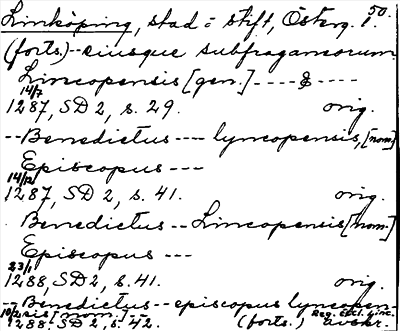 Linköping, stad o stift, Österg. 50.
(forts.) -- eiusque subfraganeorum
Lincopensis [gen.] ---- & ----
14/7 1287, SD 2, s. 29. orig.
-- Benedictus --- lyncopensis, [nom]
Episcopus ---
14/12 1287, SD 2, s. 41. orig.
Benedictus -- Lincopensis [nom]
Episcopus ---
23/1 1288, SD 2, s. 41. orig.
-- Benedictus -- episcopus lyncopen-
sis [nom.] -- Reg. Eccl. Linc.
10/2 1288 SD 2, s. 42. (forts.) avskr.